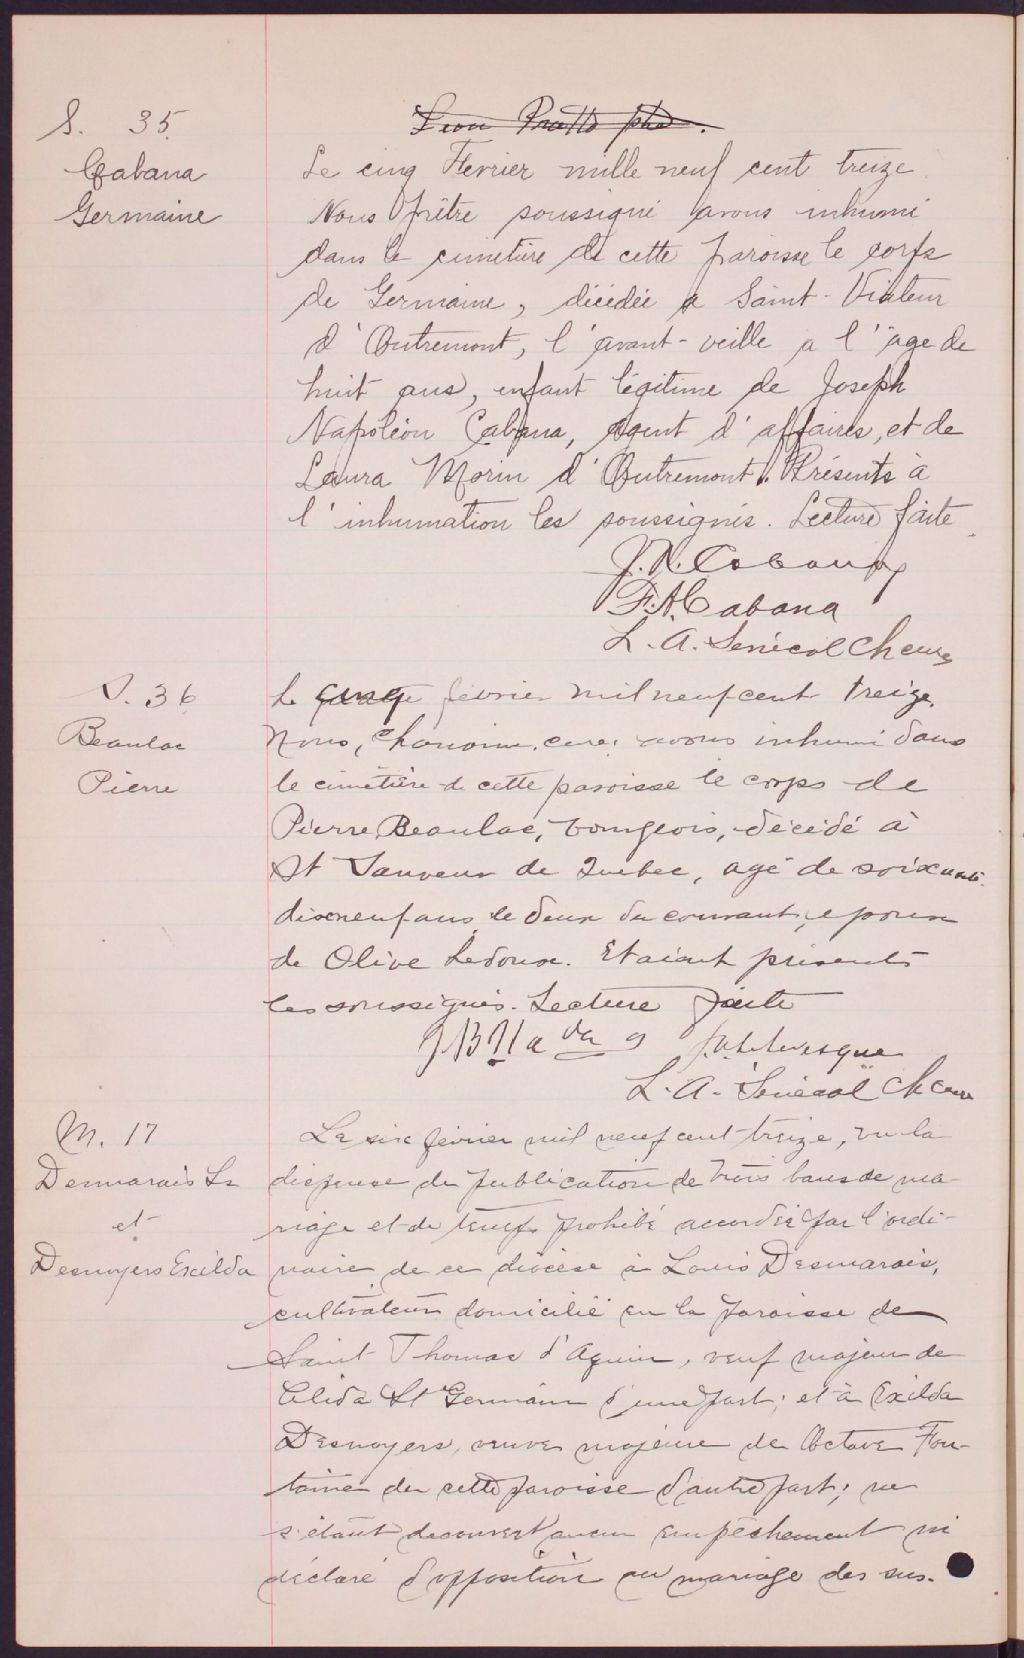 S. 35
Cabana
Germaine
Leon Pratte ptre.
Le cinq Février mille neuf cent treize.
Nous prêtre soussigné avons inhumé
dans le cimetière de cette paroisse le corps
de Germaine, décédée a Saint-Viateur
d'Outremont, l'avant-veille a l'age de
huit ans, enfant légitime de Joseph
Napoléon Cabana, Agent d'affaires, et de
Laura Morin d'Outremont. Présents à
l'inhumation les soussignés. Lecture faite.
J. N. Cabana
F. A. Cabana
L. A. Senécal Ch curé
S. 36
Beaulac
Pierre
Le cinq février mil neuf cent treize,
Nous, Chanoine, curé, avons inhumé dans
le cimétière de cette paroisse le corps de
Pierre Beaulac, bourgeois, décédé à
St Sauveur de Quebec, agé de soixante
dixneuf ans, le deux du courant, epoux
de Olive Ledoux. Etaient présents
les soussignés. Lecture faite
L. A. Senécal Ch curé
M. 17
Desmarais Ls
et
Desnoyers Exilda
Le six février mil neuf cent treize, vu la
dispense de publication de trois bans de ma-
riage et de temps prohibé accordée par l'ordi-
naire de ce diocèse à Louis Desmarais,
cultivateur domicilié en la paroisse de
Saint Thomas d'Aquin, veuf majeur de
Clida St Germain d'une part; et à Exilda
Desnoyers, veuve majeure de Octave Fon-
taine de cette paroisse d'autre part; ne
s'étant decouvert aucun empêchement ni
déclaré d'opposition au mariage des sus-